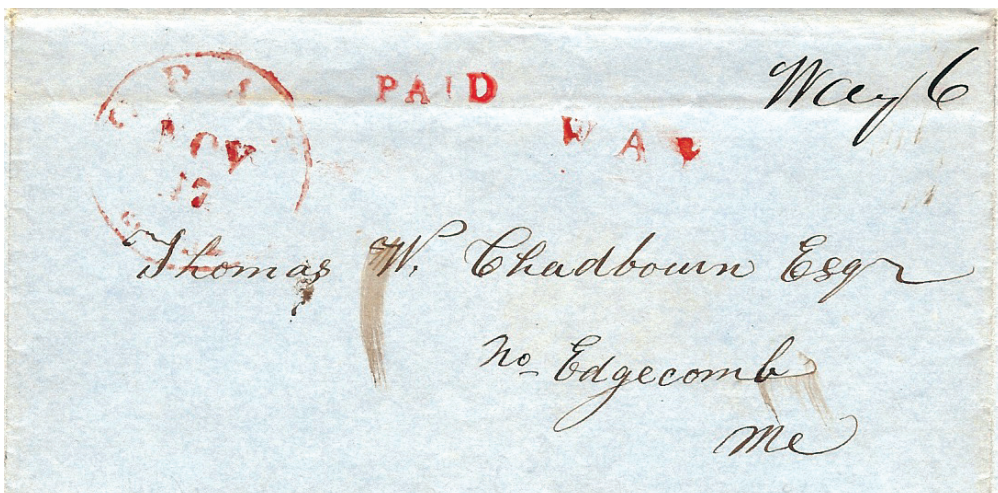 NOV
17
PAID
WAY
Way 6
Thomas W. Chadbourn Esqr
No Edgecomb
Me